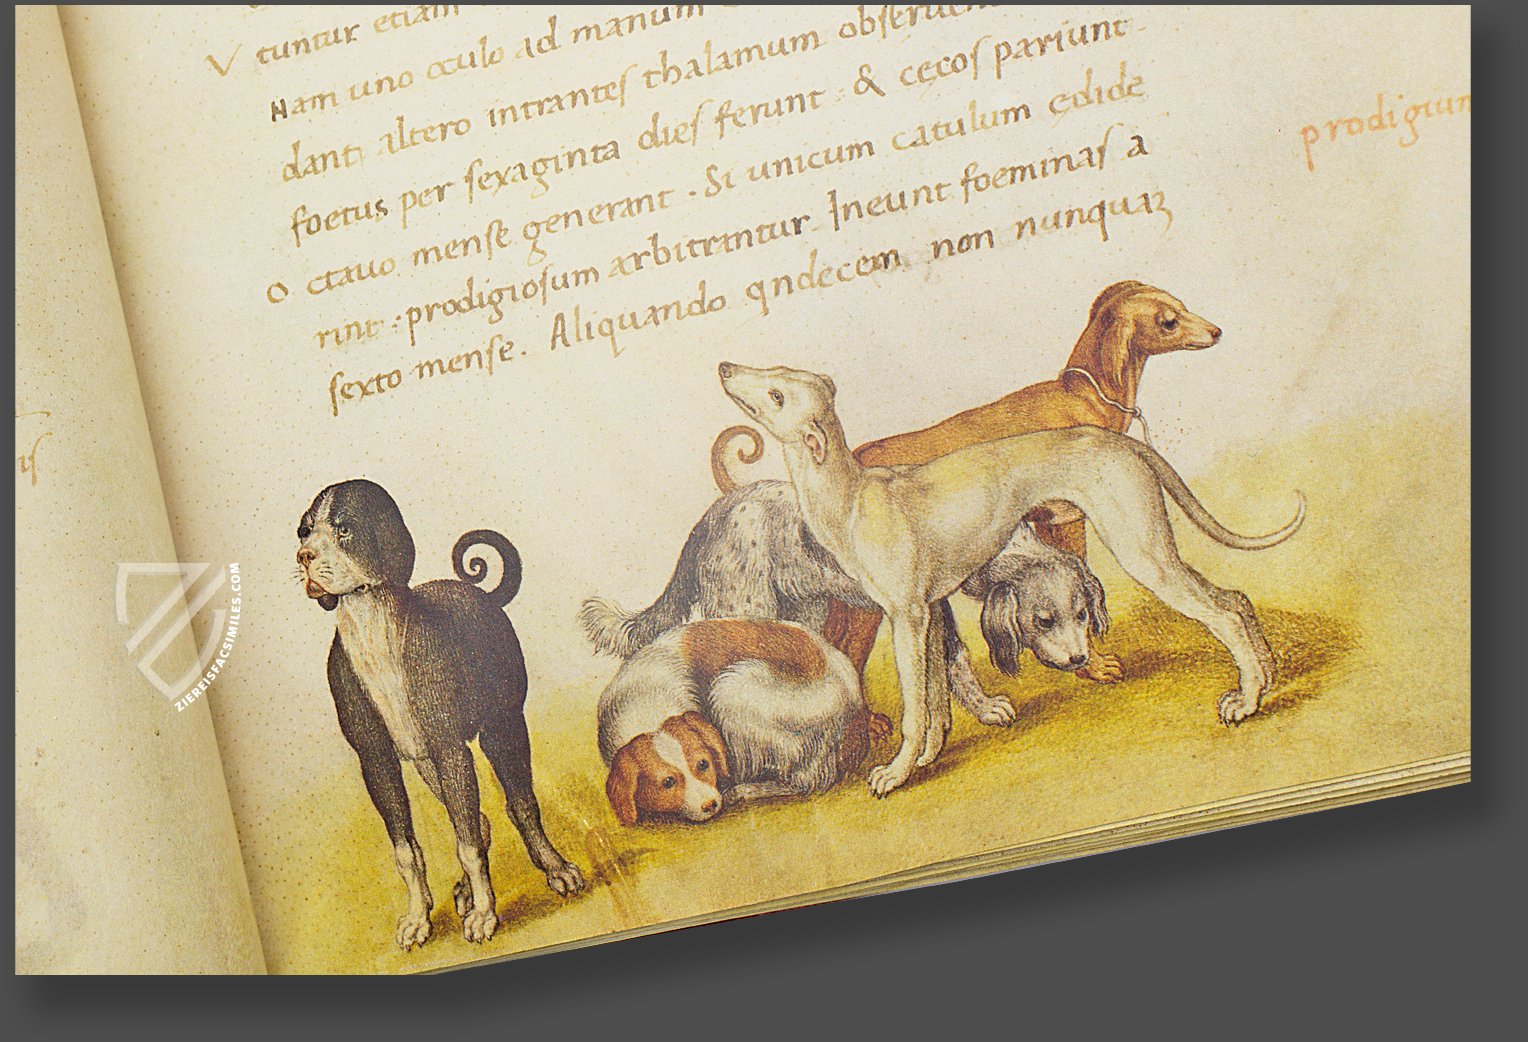 V tuntur etiam
Nam uno oculo ad manum
dant altero intrantes thalamum obseruant
foetus per sexaginta dies ferunt. & cęcos pariunt.
octauo mense generant. Si unicum catulum edide
rint: prodigiosum arbitrantur. Ineunt foeminas a
sexto mense. Aliquando qndecem non nunquaʒ
prodigium
is
ZIEREISFACSIMILES.COM